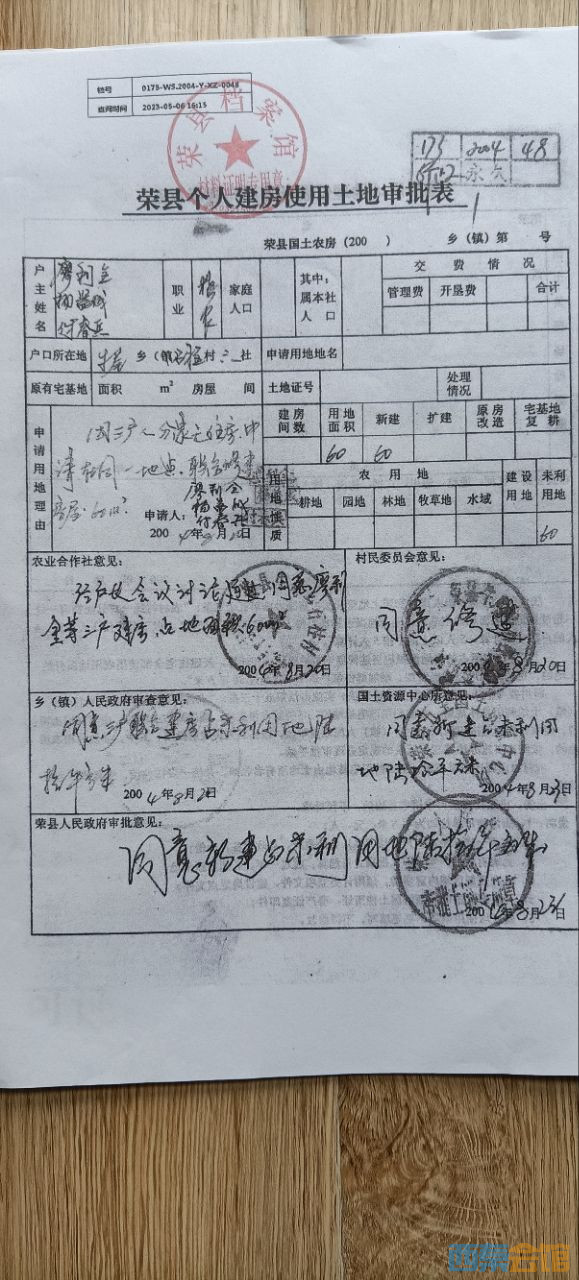 档号 0175-WS.2004-Y-XZ-0048
查阅时间 2023-05-06 16:15
荣县档案馆
材料证明专用章
175 2004 48
永久
荣县个人建房使用土地审批表
荣县国土农房（200 ） 乡（镇）第 号
户主姓名 廖利全
职业 务农
家庭人口
其中：属本社人口
交费情况
管理费 开垦费 合计
户口所在地 乡（镇） 村 社
申请用地地名
原有宅基地 面积 m² 房屋 间
土地证号
处理情况
申请用地理由
因三户人分家无住房，申
请在同一地点，联合修建
房屋60m²
申请人：廖利全
2004年8月20日
建房间数 用地面积 新建 扩建 原房改造 宅基地复耕
60 60
用地性质
农用地 建设用地 未利用地
耕地 园地 林地 牧草地 水域
60
农业合作社意见：
经户代会议讨论通过，同意廖利
全等三户建房占地面积60m²
2004年8月20日
村民委员会意见：
同意修建
2004年8月20日
乡（镇）人民政府审查意见：
同意三户联合建房占未利用地陆
拾平方米
2004年8月2 日
国土资源中心房意见：
同意新建占未利用
地陆拾平方米
2004年8月23日
荣县人民政府审批意见：
同意新建占未利用地陆拾平方米
2004年8月23日